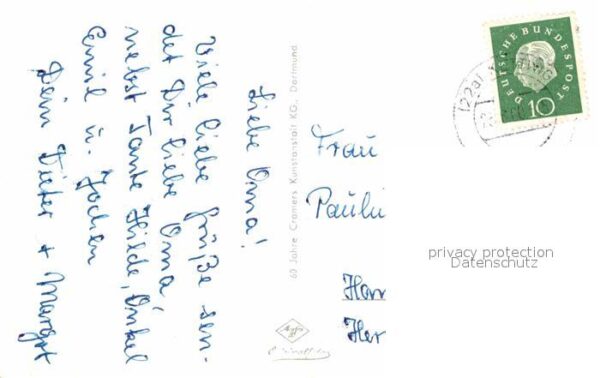 Liebe Oma!
Viele liebe Grüße sen-
det Dir liebe Oma
nebst Tante Hilde, Onkel
Emil u. Jochen
Dein Dieter + Margot
60 Jahre Cramers Kunstanstalt KG., Dortmund
Frau
Paulin
Han
Her
DEUTSCHE BUNDESPOST
10
(22a)
privacy protection
Datenschutz